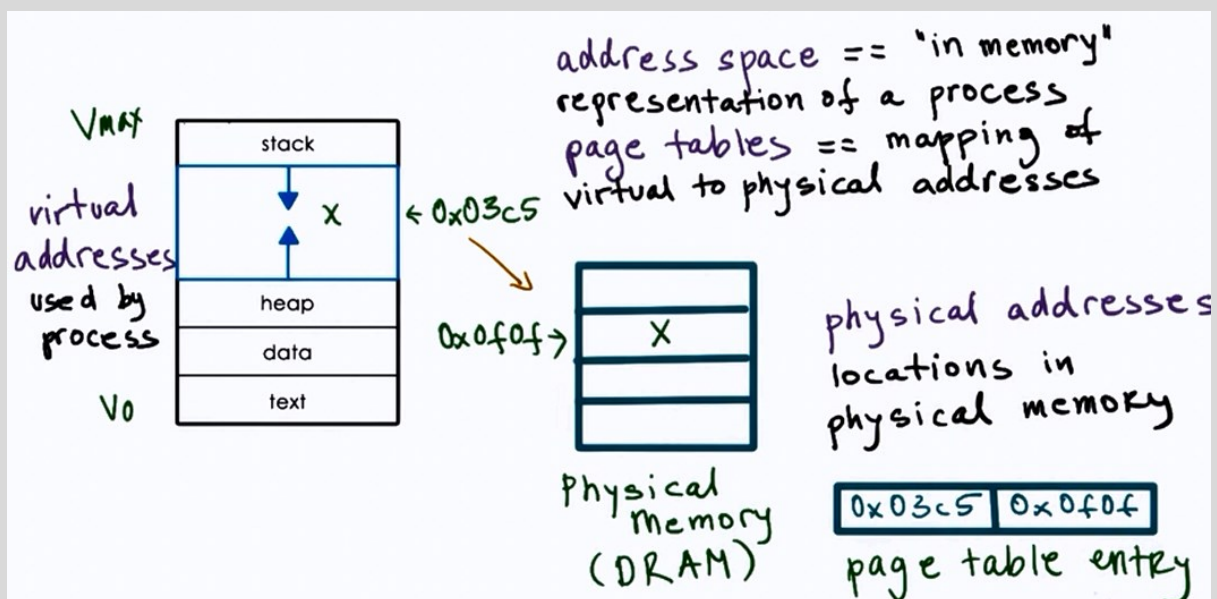 address space == "in memory"
representation of a process
page tables == mapping of
virtual to physical addresses
Vmax
stack
virtual
addresses
used by
process
X
← 0x03c5
heap
data
text
V0
0x0f0f →
X
Physical
memory
(DRAM)
physical addresses
locations in
physical memory
0x03c5 0x0f0f
page table entry